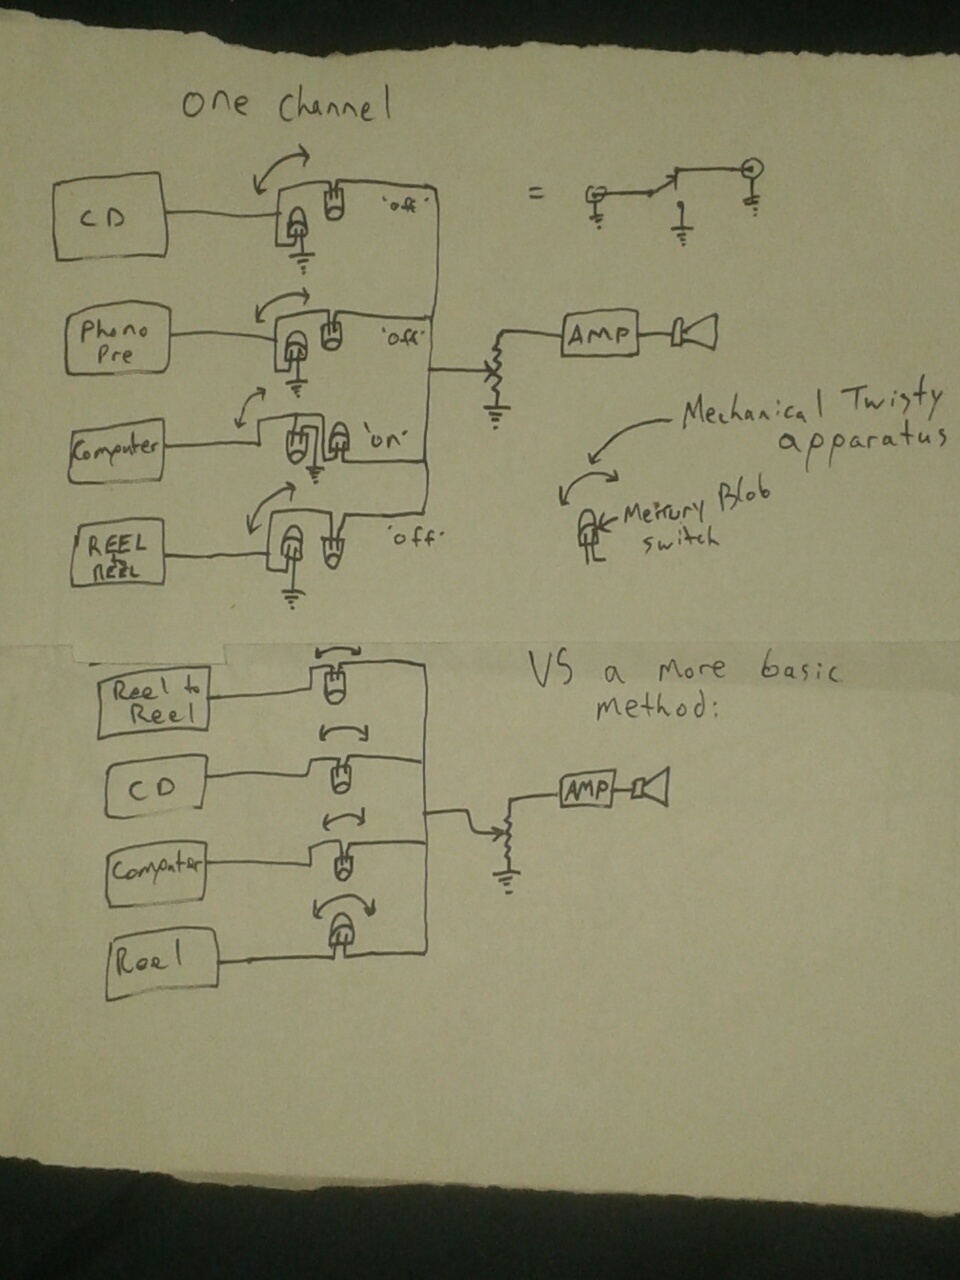 one channel
CD
'off'
=
Phono
Pre
'off'
AMP
Mechanical Twisty
apparatus
Computer
'on'
Mercury Blob
switch
REEL
to
REEL
'off'
VS a more basic
method:
Reel to
Reel
CD
AMP
Computer
Reel